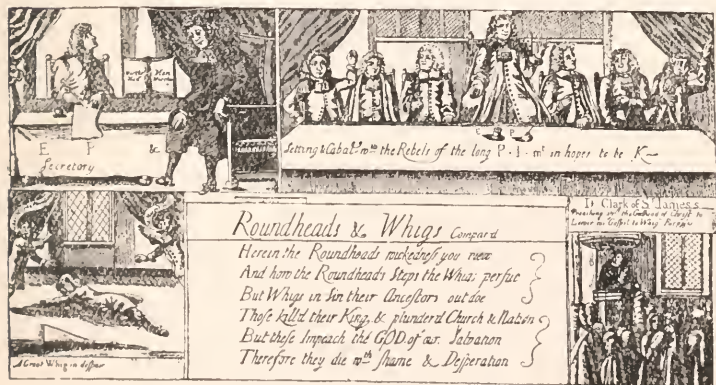 E P &
Secretory
Setting & Cabal wth the Rebels of the long P·l·mt in hopes to be K—
E P
Roundheads & Whigs Compard
Herein the Roundheads wickedness you view
And how the Roundheads Steps the Whigs persue
But Whigs in Sin their Ancestors out doe
Those kill'd their King, & plunder'd Church & Nation
But these Impeach the GOD of our Salvation
Therefore they die wth Shame & Desperation
A Great Whig in despar
Clark of St James's
Preaching the Godhead of Christ to